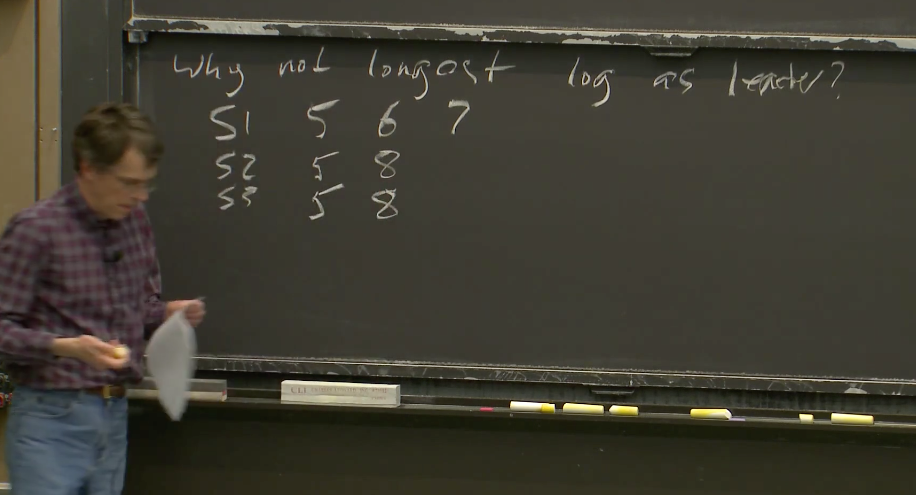 Why not longest log as leader?
S1 5 6 7
S2 5 8
S3 5 8